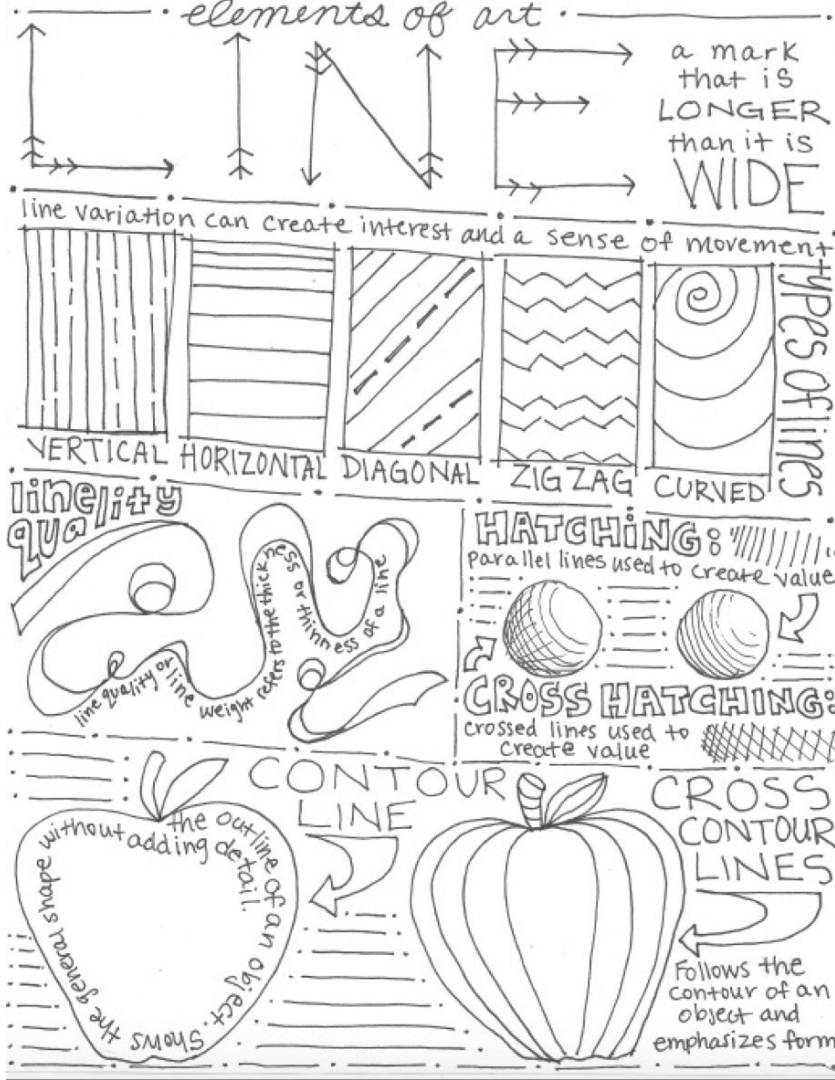 elements of art
LINE
a mark
that is
LONGER
than it is
WIDE
line variation can create interest and a sense of movement
types of lines
VERTICAL
HORIZONTAL
DIAGONAL
ZIG ZAG
CURVED
line quality
line quality or line weight refers to the thickness or thinness of a line
HATCHING:
parallel lines used to create value
CROSS HATCHING:
crossed lines used to
create value
CONTOUR
LINE
the outline of an object. Shows the general shape without adding detail.
CROSS
CONTOUR
LINES
Follows the
contour of an
object and
emphasizes form